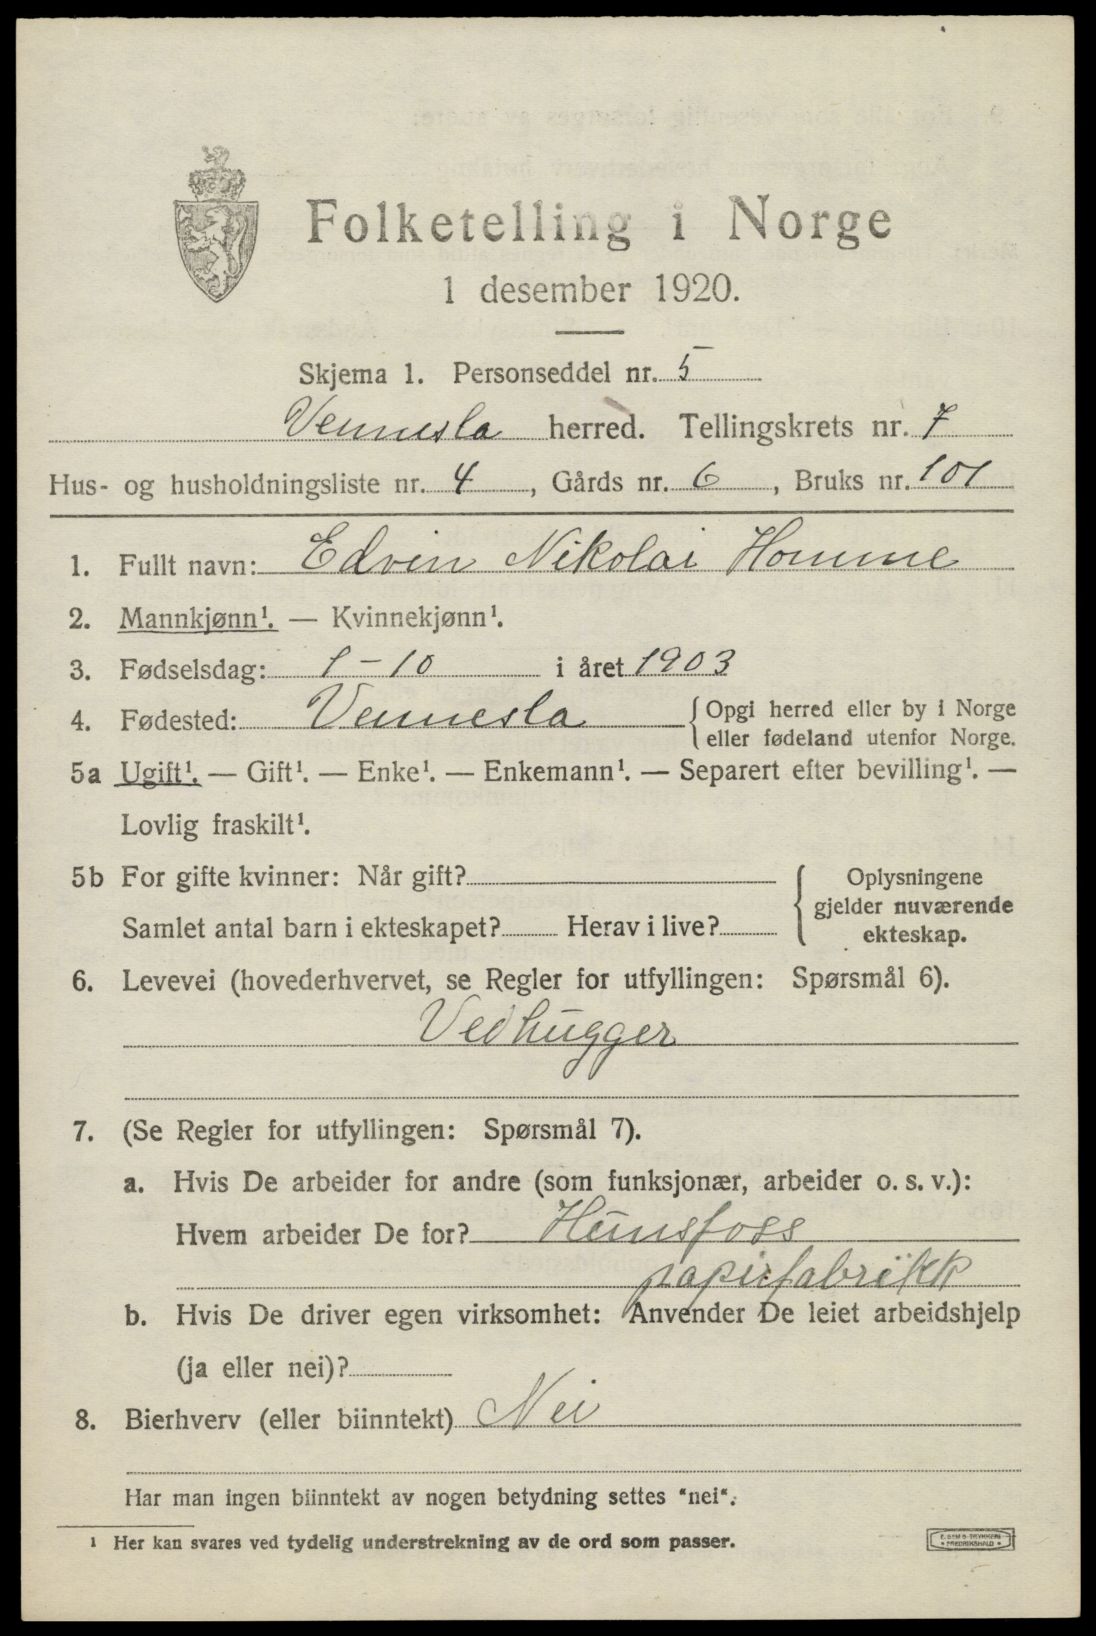 Folketelling i Norge
1 desember 1920.
Skjema 1. Personseddel nr. 5
Vennesla herred. Tellingskrets nr. 7
Hus- og husholdningsliste nr. 4, Gårds nr. 6, Bruks nr. 101
1. Fullt navn: Edvin Nikolai Homme
2. Mannkjønn¹. — Kvinnekjønn¹.
3. Fødselsdag: 1-10 i året 1903
4. Fødested: Vennesla {Opgi herred eller by i Norge
eller fødeland utenfor Norge.
5a Ugift¹. — Gift¹. — Enke¹. — Enkemann¹. — Separert efter bevilling¹. —
Lovlig fraskilt¹.
5b For gifte kvinner: Når gift?
Samlet antal barn i ekteskapet? Herav i live?
{ Oplysningene
gjelder nuværende
ekteskap.
6. Levevei (hovederhvervet, se Regler for utfyllingen: Spørsmål 6).
Vedhugger
7. (Se Regler for utfyllingen: Spørsmål 7).
a. Hvis De arbeider for andre (som funksjonær, arbeider o. s. v.):
Hvem arbeider De for? Hunsfoss
papirfabrikk
b. Hvis De driver egen virksomhet: Anvender De leiet arbeidshjelp
(ja eller nei)?
8. Bierhverv (eller biinntekt) Nei
Har man ingen biinntekt av nogen betydning settes "nei".
¹ Her kan svares ved tydelig understrekning av de ord som passer.
FREDRIKSHALD